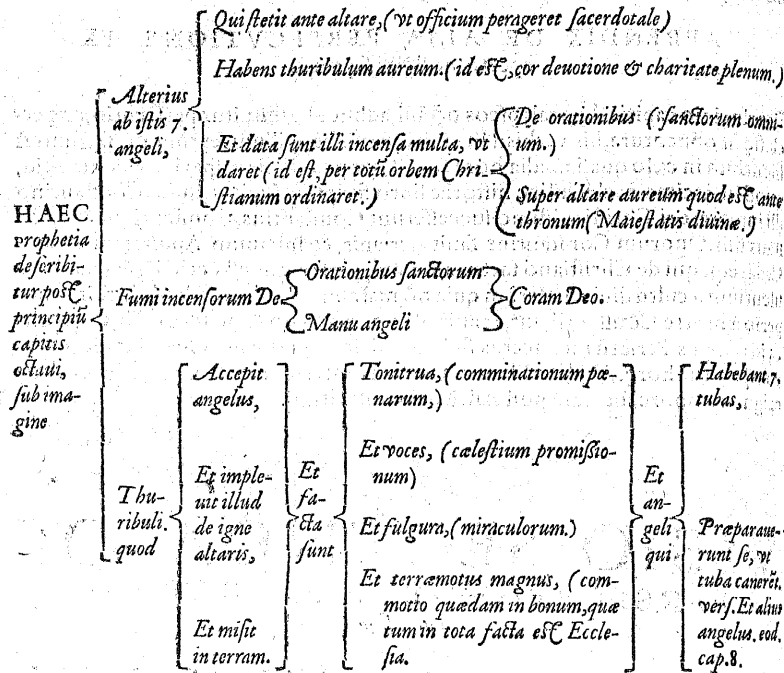 HAEC
prophetia
describi-
tur post
principiũ
capitis
octaui,
sub ima-
gine
Alterius
ab istis 7.
angeli,
Qui stetit ante altare, (vt officium perageret sacerdotale)
Habens thuribulum aureum. (id est, cor deuotione & charitate plenum.)
Et data sunt illi incensa multa, vt
daret (id est, per totũ orbem Chri-
stianum ordinaret.)
De orationibus (sanctorum omni-
um.)
Super altare aureum quod est ante
thronum (Maiestatis diuinæ.)
Fumi incensorum De
Orationibus sanctorum
Manu angeli
Coram Deo.
Thu-
ribuli.
quod
Accepit
angelus,
Et imple-
uit illud
de igne
altaris,
Et misit
in terram.
Et
fa-
cta
sunt
Tonitrua, (comminationum pœ-
narum,)
Et voces, (cælestium promissio-
num)
Et fulgura, (miraculorum.)
Et terræmotus magnus, (com-
motio quædam in bonum, quæ
tum in tota facta est Eccle-
sia.
Et
an-
geli
qui
Habebant 7.
tubas,
Præparaue-
runt se, vt
tuba canerẽt.
vers. Et alius
angelus. eod.
cap. 8.